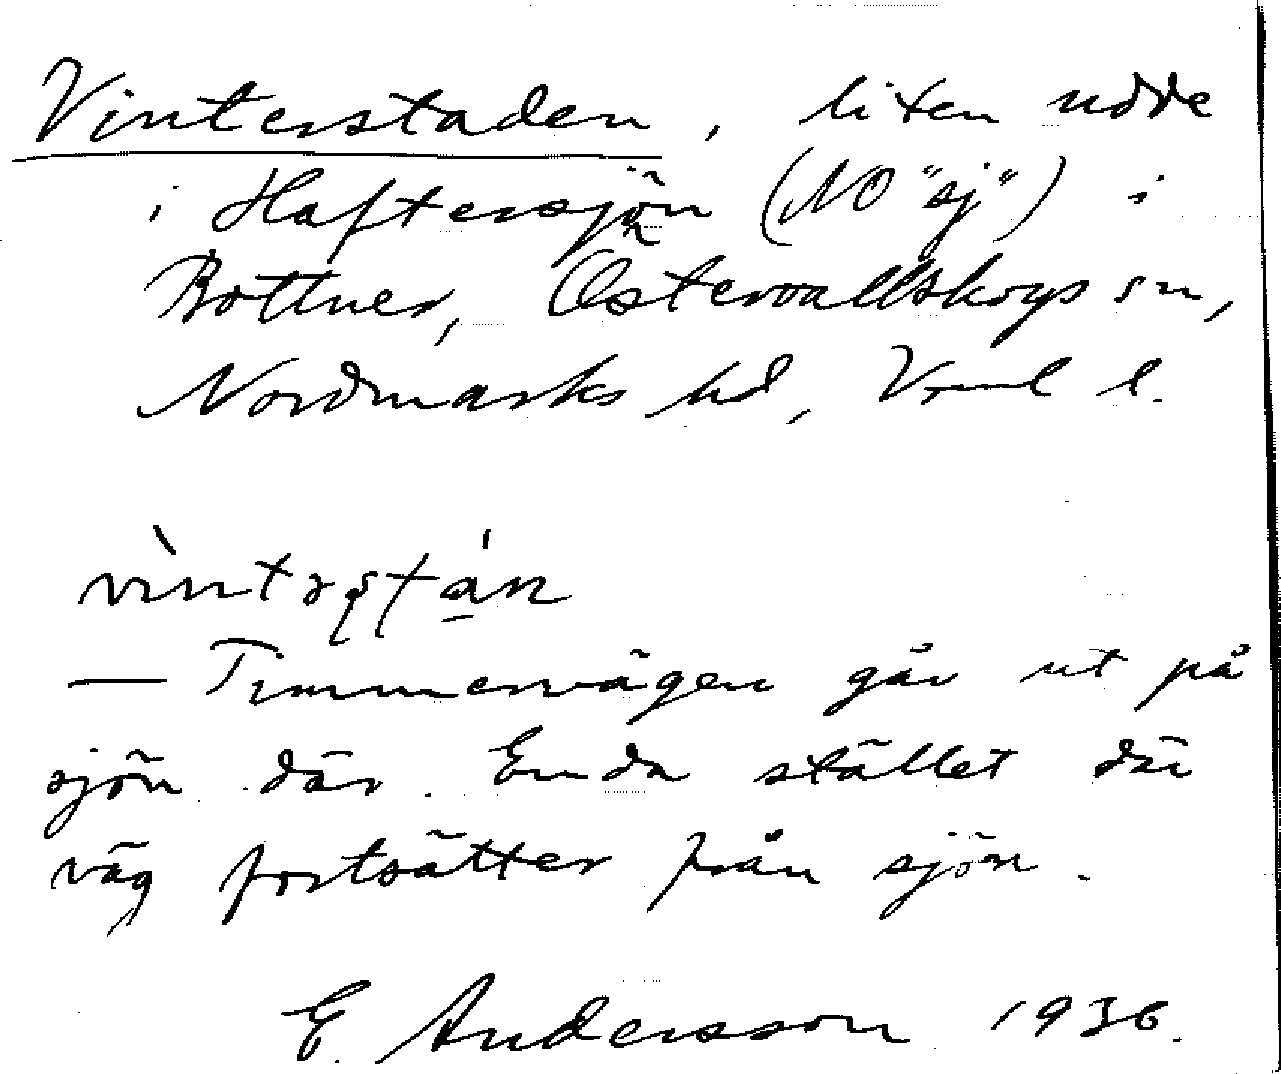 Vinterstaden, liten udde
i Haftersjön (NO "sj") i
Bottner, Östervallskogs sn,
Nordmarks hd, Vrml l.
— Timmervägen går ut på
sjön där. Enda stället där
väg fortsätter från sjön.
E. Andersson 1936.